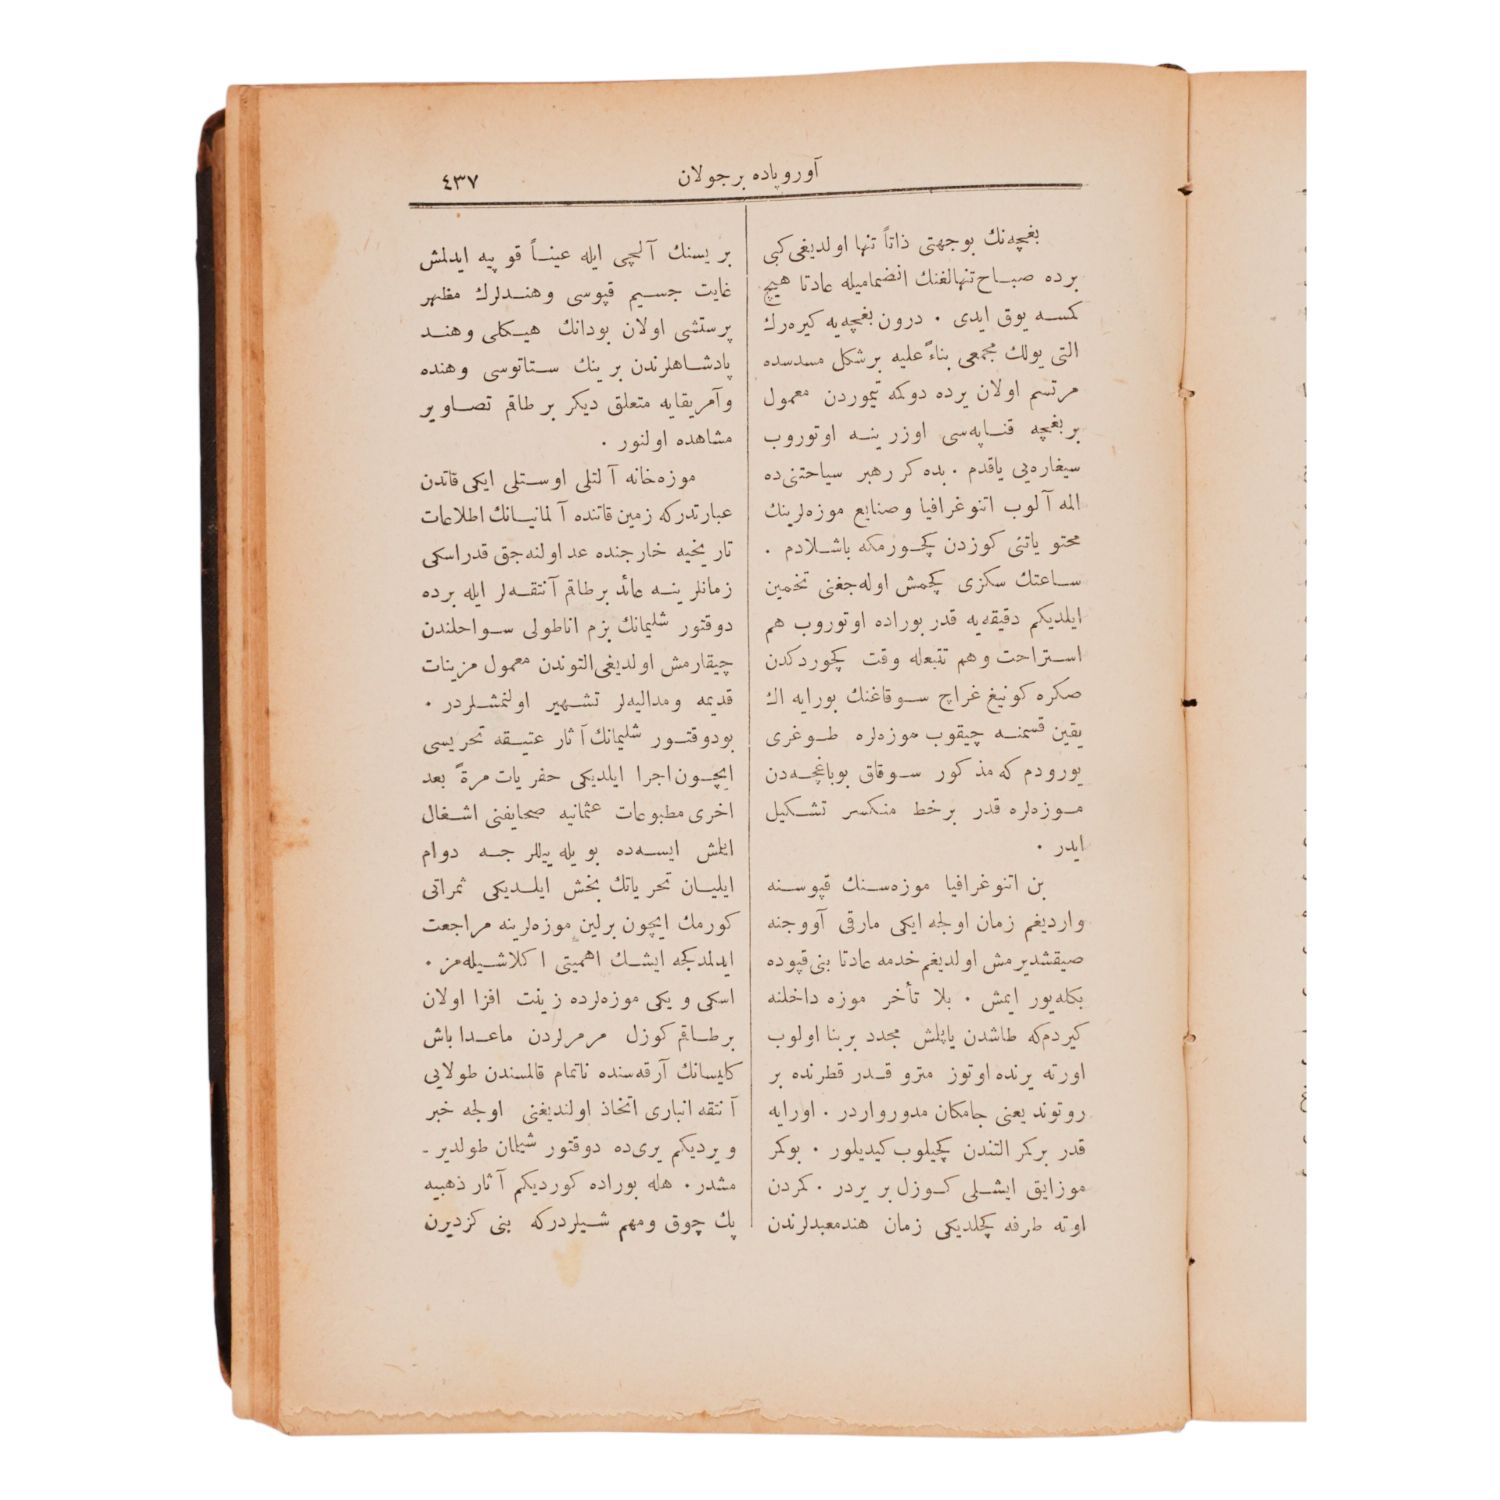 آوروپاده بر جولان
٤٣٧
بغچه‌نك بوجهتی ذاتاً تنها اولدیغی کبی
برده صباح تنهالغنك انضمامیله عادتا هیچ
کمسه یوق ایدی . درون بغچه‌یه کیره‌رك
التی یولك مجمعی بناءً علیه بر شکل مسدسده
مرتسم اولان یرده دوکمه تیموردن معمول
بر بغچه قناپه‌سی اوزرینه اوتوروب
سیغاره‌یی یاقدم . بده کر رهبر سیاحتنی‌ده
المه آلوب اتنوغرافیا وصنایع موزه‌لرینك
محتویاتنی کوزدن کچورمکه باشلادم .
ساعتك سکزی کچمش اوله‌جغنی تخمین
ایلدیکم دقیقه‌یه قدر بوراده اوتوروب هم
استراحت وهم تتبعله وقت کچوردکدن
صکره کونیغ غراچ سوقاغنك بورایه اك
یقین قسمنه چیقوب موزه‌لره طوغری
یورودم که مذکور سوقاق بوباغچه‌دن
موزه‌لره قدر برخط منکسر تشکیل
ایدر .
بن اتنوغرافیا موزه‌سنك قپوسنه
واردیغم زمان اولجه ایکی مارقی آووجنه
صیقشدیرمش اولدیغم خدمه عادتا بنی قپوده
بکله‌یور ایمش . بلا تأخر موزه داخلنه
کیردم که طاشدن یاپلش مجدد بربنا اولوب
اورته یرنده اوتوز مترو قدر قطرنده بر
روتوند یعنی جامکان مدور واردر . اورایه
قدر برکمر التندن کچیلوب کیدیلور . بوکمر
موزایق ایشلی کوزل بریردر . کمردن
اوته طرفه کچلدیکی زمان هند معبدلرندن
بریسنك آلچی ایله عیناً قوپیه ایدلمش
غایت جسیم قپوسی وهندلرك مظهر
پرستشی اولان بودانك هیکلی وهند
پادشاهلرندن برینك ستاتوسی وهنده
وآمریقایه متعلق دیکر برطاقم تصاویر
مشاهده اولنور .
موزه‌خانه آلتلی اوستلی ایکی قاتدن
عبارتدرکه زمین قاتنده آلمانیانك اطلاعات
تاریخیه خارجنده عد اولنه‌جق قدر اسکی
زمانلرینه عائد برطاقم آنتقه‌لر ایله برده
دوقتور شلیمانك بزم اناطولی سواحلندن
چیقارمش اولدیغی التوندن معمول مزینات
قدیمه ومدالیه‌لر تشهیر اولنمشلردر .
بودوقتور شلیمانك آثار عتیقه تحریسی
ایچون اجرا ایلدیکی حفریات مرةً بعد
اخری مطبوعات عثمانیه صحایفنی اشغال
ایتلش ایسه‌ده بویله ییللرجه دوام
ایلیان تحریاتك بخش ایلدیکی ثمراتی
کورمك ایچون برلین موزه‌لرینه مراجعت
ایدلمدکجه ایشك اهمیتی اکلاشیله‌مز .
اسکی ویکی موزه‌لرده زینت افزا اولان
برطاقم کوزل مرمرلردن ماعدا باش
کلیسانك آرقه‌سنده ناتمام قالمسندن طولایی
آنتقه انباری اتخاذ اولندیغنی اولجه خبر
ویردیکم یری‌ده دوقتور شیلمان طولدیر-
مشدر . هله بوراده کوردیکم آثار ذهبیه
پك چوق ومهم شیلردرکه بنی کزدیرن